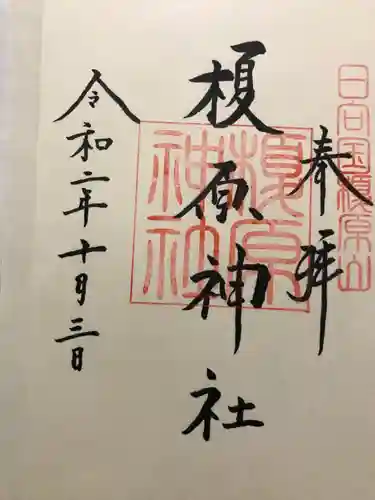 日向国榎原山
奉拝
榎原神社
榎原神社
令和二年十月三日